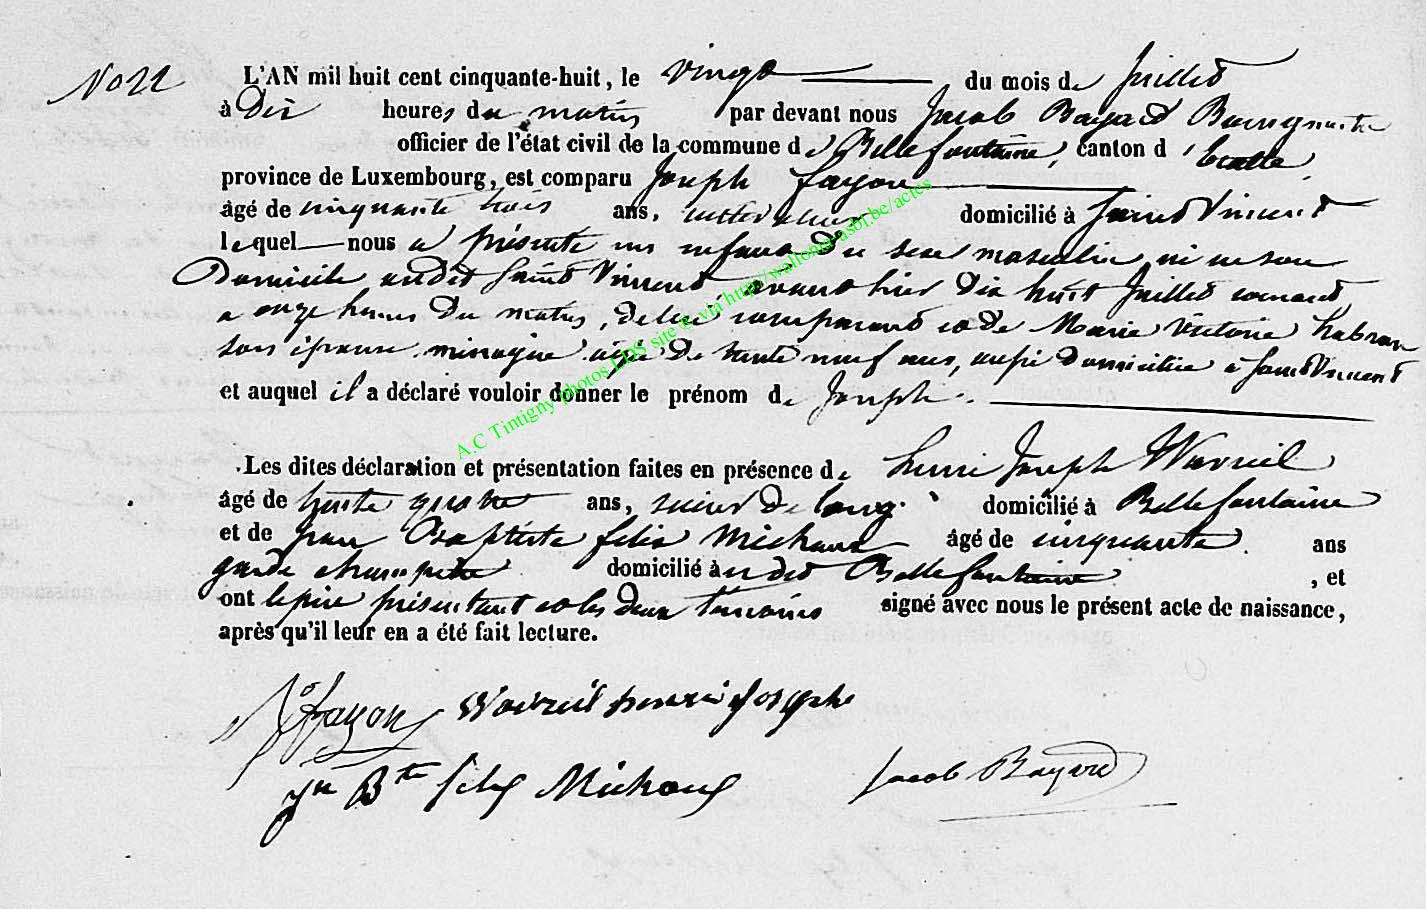 No 22
L'AN mil huit cent cinquante-huit, le vingt du mois de Juillet
à Dix heures du matin par devant nous Jacob Bayard Bourgmestre
officier de l'état civil de la commune de Bellefontaine, canton d'Etalle,
province de Luxembourg, est comparu Joseph fayon
âgé de cinquante trois ans, cultivateur domicilié à Saint Vincent
lequel nous a présenté un enfant du sexe masculin né en son
Domicile audit Saint Vincent avant hier dix huit Juillet courant
a onze heures du matin, de lui comparant et de Marie Victoire habran
son épouse ménagère agée de trente neuf ans, aussi domiciliée à Saint Vincent
et auquel il a déclaré vouloir donner le prénom de Joseph.
Les dites déclaration et présentation faites en présence de henri Joseph Wavreil
âgé de trente quatre ans, scieur de long domicilié à Bellefontaine
et de Jean Baptiste felix Michaux âgé de cinquante ans
garde champetre domicilié audit Bellefontaine, et
ont le père présentant et les deux témoins signé avec nous le présent acte de naissance,
après qu'il leur en a été fait lecture.
fayon Wavreil henri Josephe
Jn Bte felix Michaux Jacob Bayard
A.C Tintigny photos LDS site & via http://wallonia-asbl.be/actes